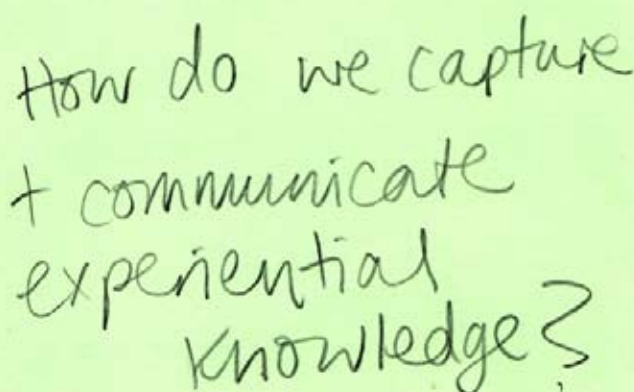 How do we capture
+ communicate
experiential
knowledge?